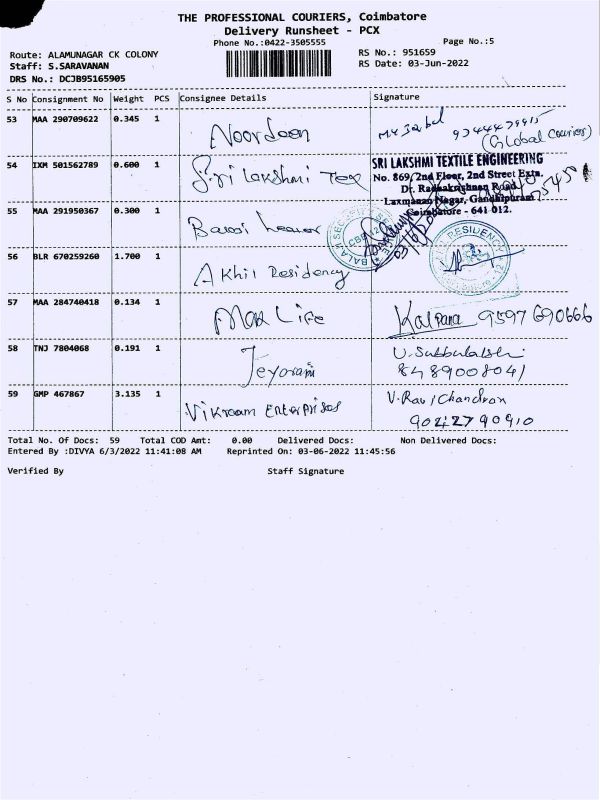 THE PROFESSIONAL COURIERS, Coimbatore
Delivery Runsheet - PCX
Phone No.:0422-3505555
Page No.:5
Route: ALAMUNAGAR CK COLONY
RS No.: 951659
Staff: S.SARAVANAN
RS Date: 03-Jun-2022
DRS No.: DCJB95165905
S No Consignment No Weight PCS Consignee Details Signature
53 MAA 290709622 0.345 1
Noordeen
(Global Courier)
54 IXM 501562789 0.600 1
Sri Lakshmi Tex
SRI LAKSHMI TEXTILE ENGINEERING
No. 869, 2nd Floor, 2nd Street Extn.
Dr. Radhakrishnan Road
Laxmanan Nagar, Gandhipuram
Coimbatore - 641 012.
55 MAA 291950367 0.300 1
56 BLR 670259260 1.700 1
Akhil Residency
57 MAA 284740418 0.134 1
Max Life
Kalpana 9597690666
58 TNJ 7804068 0.191 1
Jeyoram
8489008041
59 GMP 467867 3.135 1
Vikraam Enterprises
V.Ravichandran
9042790910
Total No. Of Docs: 59 Total COD Amt: 0.00 Delivered Docs: Non Delivered Docs:
Entered By :DIVYA 6/3/2022 11:41:08 AM Reprinted On: 03-06-2022 11:45:56
Verified By Staff Signature